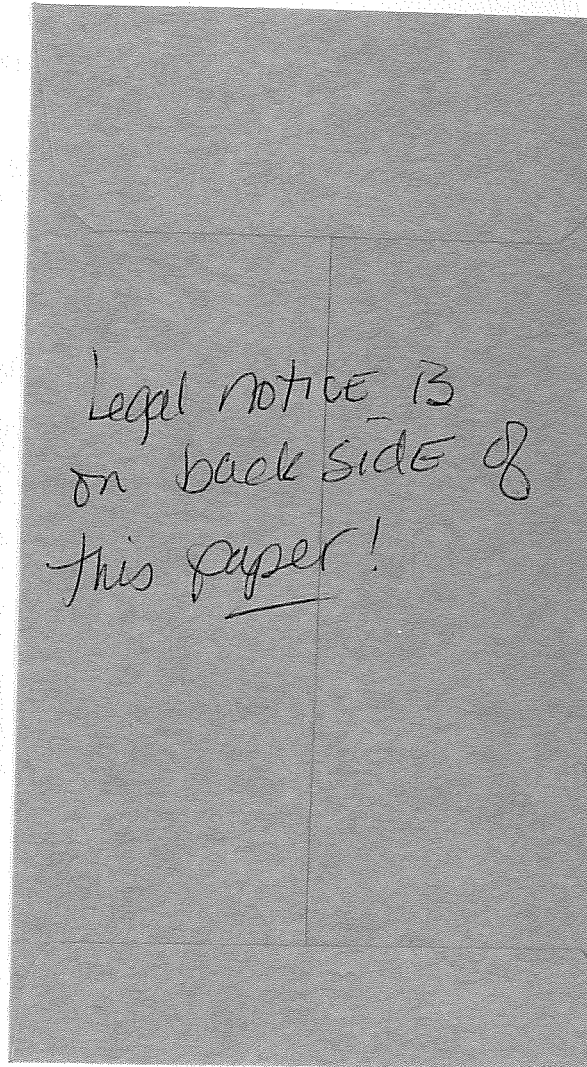 Legal noticE is
on back sidE of
this paper!